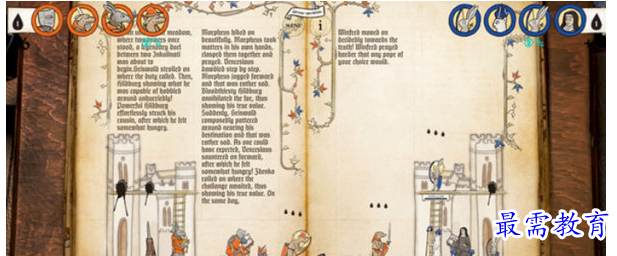 meadow,
where towers once
stood, a legendary duel
between two Inkulinati
was about to
begin.Grimwald strolled on
where the duty called. Then,
Hildburg showing what he
was capable of hobbled
around unhurriedly!
Powerful Hildburg
effortlessly struck his
cousin, after which he felt
somewhat hungry.
Morpheus hiked on
beautifully. Morpheus took
matters in his own hands,
clasped them together and
prayed. Venceslaus
dawdled step by step.
Morpheus jogged forward
and that was rather sad.
Bloodthirsty Hildburg
annihilated the foe, thus
showing his true value.
Suddenly, Grimwald
composedly pattered
around nearing his
destination and that was
rather sad. As one could
have expected, Venceslaus
sauntered on forward,
after which he felt
somewhat hungry! Zdenko
rolled on where the
challenge awaited, thus
showing his true value. On
the same day,
MENU
i
Winfred moved on
decidedly towards the
truth! Winfred prayed
harder that any pope of
your choice would.
最需教育